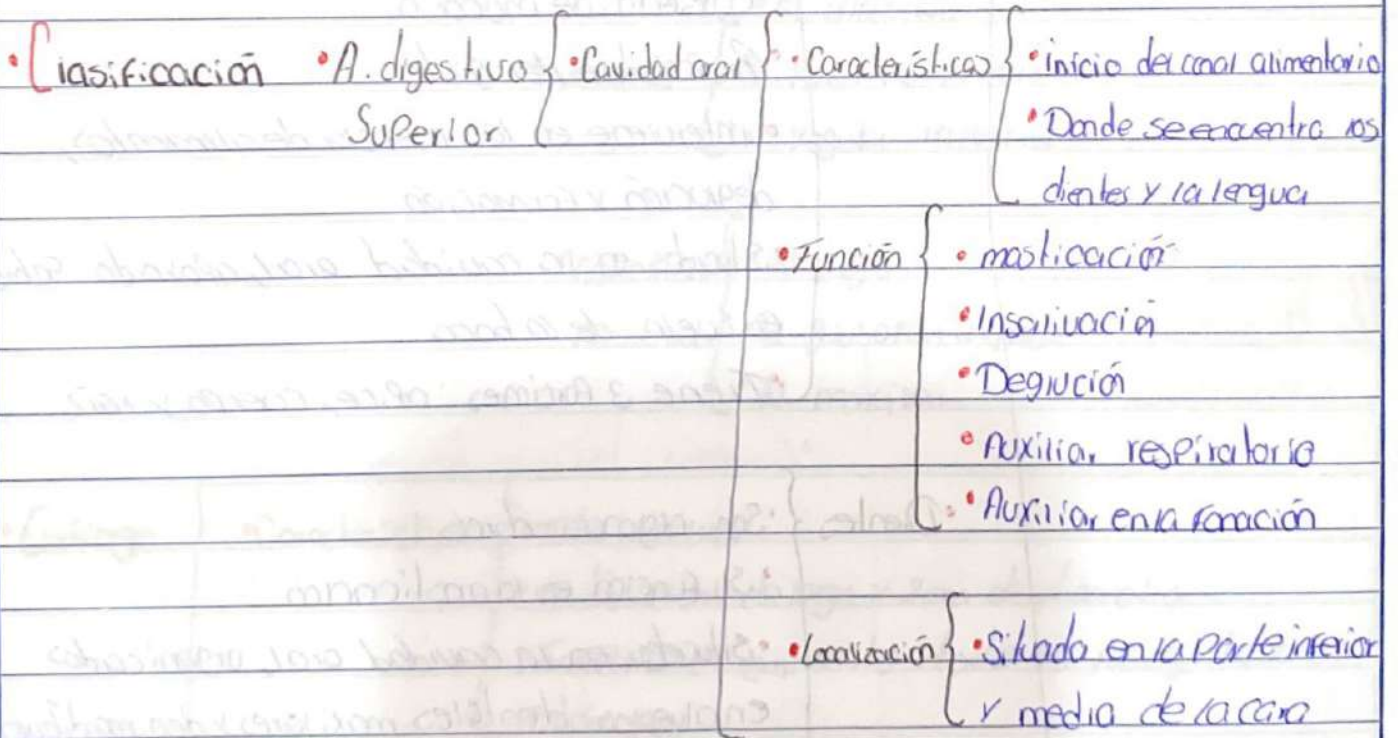 •Clasificación •A. digestivo •Cavidad oral •Características •inicio del canal alimentario
Superior •Donde se encuentra los
dientes y la lengua
•Función •masticación
•Insalivación
•Deglución
•Auxiliar respiratorio
•Auxiliar en la fonación
•Localización •Situada en la parte inferior
y media de la cara